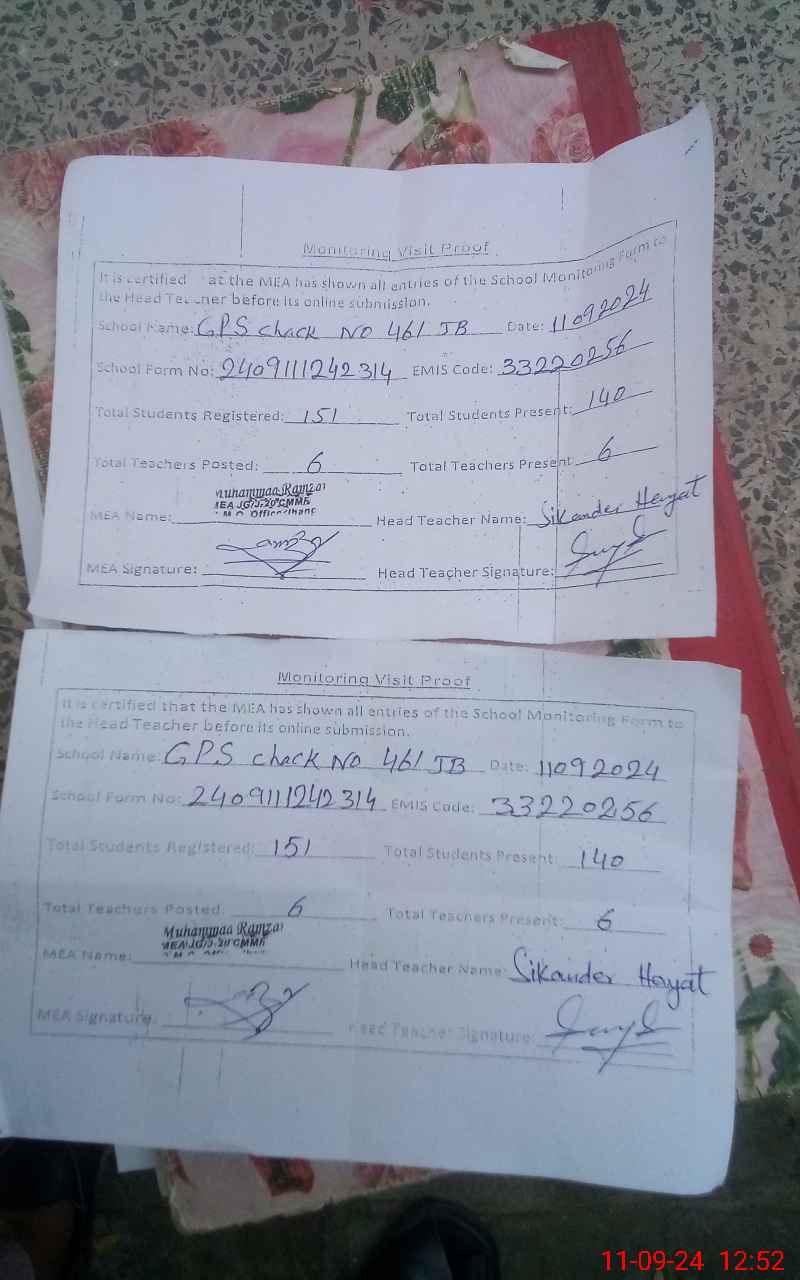 Monitoring Visit Proof
It is certified at the MEA has shown all entries of the School Monitoring Form to
the Head Teacher before its online submission.
School Name: GPS chack No 461 JB Date: 11092024
School Form No: 2409111242314 EMIS Code: 33220256
Total Students Registered: 151 Total Students Present: 140
Total Teachers Posted: 6 Total Teachers Present: 6
Muhammad Ramzan
MEA Name: Head Teacher Name: Sikander Hayat
MEA Signature: Head Teacher Signature:
Monitoring Visit Proof
It is certified that the MEA has shown all entries of the School Monitoring Form to
the Head Teacher before its online submission.
School Name: GPS chack No 461 JB Date: 11092024
School Form No: 2409111242314 EMIS Code: 33220256
Total Students Registered: 151 Total Students Present: 140
Total Teachers Posted: 6 Total Teachers Present: 6
Muhammad Ramzan
MEA Name: Head Teacher Name: Sikander Hayat
MEA Signature: Head Teacher Signature:
11-09-24 12:52